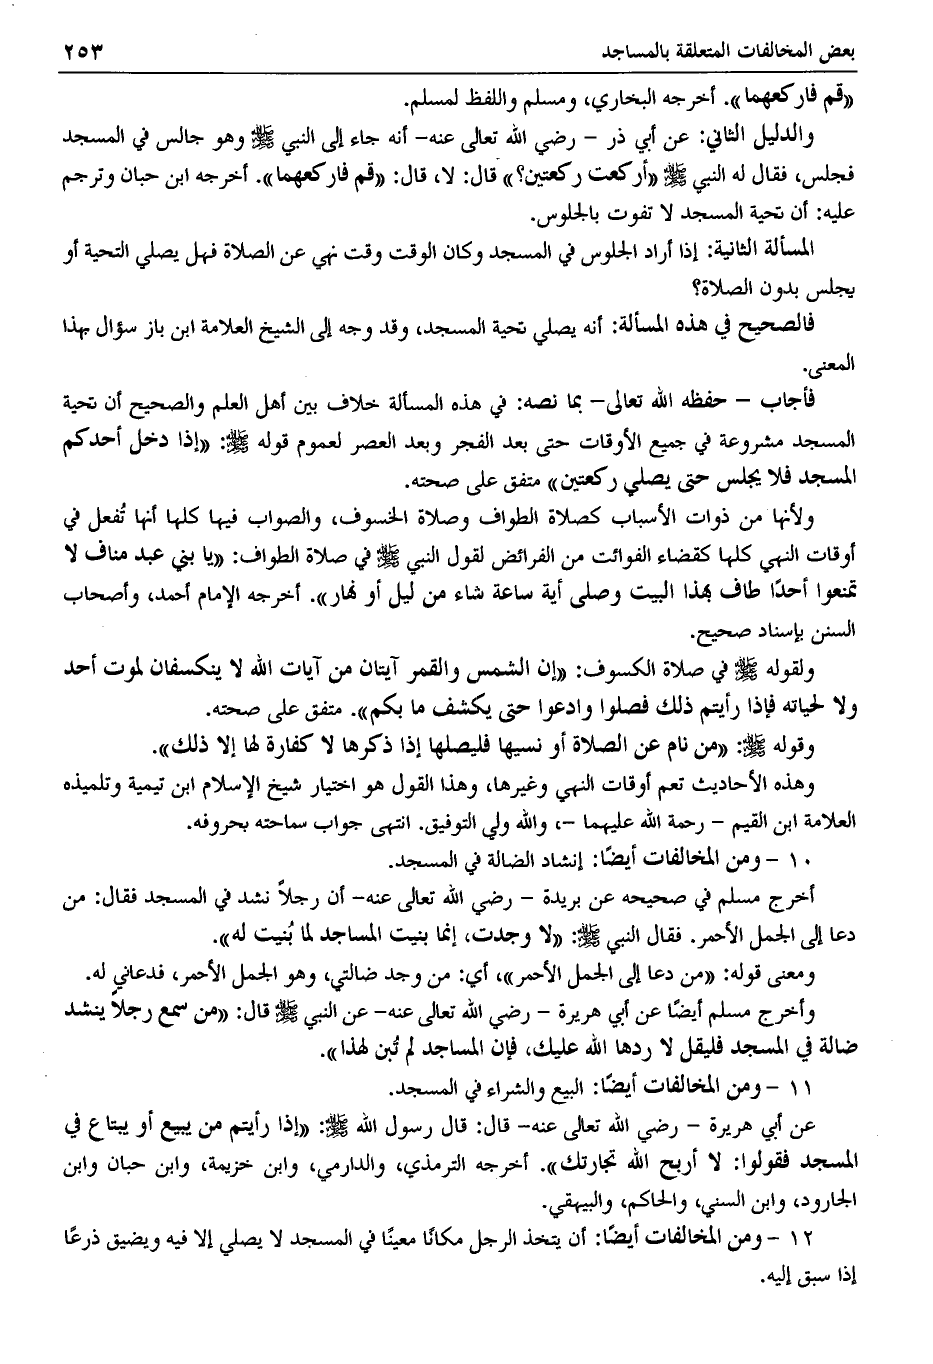 بعض المخالفات المتعلقة بالمساجد ٢٥٣
«قم فاركعهما». أخرجه البخاري، ومسلم واللفظ لمسلم.
والدليل الثاني: عن أبي ذر – رضي الله تعالى عنه– أنه جاء إلى النبي ﷺ وهو جالس في المسجد
فجلس، فقال له النبي ﷺ «أركعت ركعتين؟» قال: لا، قال: «قم فاركعهما». أخرجه ابن حبان وترجم
عليه: أن تحية المسجد لا تفوت بالجلوس.
المسألة الثانية: إذا أراد الجلوس في المسجد وكان الوقت وقت نهي عن الصلاة فهل يصلي التحية أو
يجلس بدون الصلاة؟
فالصحيح في هذه المسألة: أنه يصلي تحية المسجد، وقد وجه إلى الشيخ العلامة ابن باز سؤال بهذا
المعنى.
فأجاب – حفظه الله تعالى– بما نصه: في هذه المسألة خلاف بين أهل العلم والصحيح أن تحية
المسجد مشروعة في جميع الأوقات حتى بعد الفجر وبعد العصر لعموم قوله ﷺ: «إذا دخل أحدكم
المسجد فلا يجلس حتى يصلي ركعتين» متفق على صحته.
ولأنها من ذوات الأسباب كصلاة الطواف وصلاة الخسوف، والصواب فيها كلها أنها تُفعل في
أوقات النهي كلها كقضاء الفوائت من الفرائض لقول النبي ﷺ في صلاة الطواف: «يا بني عبد مناف لا
تمنعوا أحدًا طاف بهذا البيت وصلى أية ساعة شاء من ليل أو نهار». أخرجه الإمام أحمد، وأصحاب
السنن بإسناد صحيح.
ولقوله ﷺ في صلاة الكسوف: «إن الشمس والقمر آيتان من آيات الله لا ينكسفان لموت أحد
ولا لحياته فإذا رأيتم ذلك فصلوا وادعوا حتى يكشف ما بكم». متفق على صحته.
وقوله ﷺ: «من نام عن الصلاة أو نسيها فليصلها إذا ذكرها لا كفارة لها إلا ذلك».
وهذه الأحاديث تعم أوقات النهي وغيرها، وهذا القول هو اختيار شيخ الإسلام ابن تيمية وتلميذه
العلامة ابن القيم – رحمة الله عليهما –، والله ولي التوفيق. انتهى جواب سماحته بحروفه.
١٠ – ومن المخالفات أيضًا: إنشاد الضالة في المسجد.
أخرج مسلم في صحيحه عن بريدة – رضي الله تعالى عنه– أن رجلاً نشد في المسجد فقال: من
دعا إلى الجمل الأحمر. فقال النبي ﷺ: «لا وجدت، إنما بنيت المساجد لما بُنيت له».
ومعنى قوله: «من دعا إلى الجمل الأحمر»، أي: من وجد ضالتي، وهو الجمل الأحمر، فدعاني له.
وأخرج مسلم أيضًا عن أبي هريرة – رضي الله تعالى عنه– عن النبي ﷺ قال: «من سمع رجلاً ينشد
ضالة في المسجد فليقل لا ردها الله عليك، فإن المساجد لم تُبن لهذا».
١١ – ومن المخالفات أيضًا: البيع والشراء في المسجد.
عن أبي هريرة – رضي الله تعالى عنه– قال: قال رسول الله ﷺ: «إذا رأيتم من يبيع أو يبتاع في
المسجد فقولوا: لا أربح الله تجارتك». أخرجه الترمذي، والدارمي، وابن خزيمة، وابن حبان وابن
الجارود، وابن السني، والحاكم، والبيهقي.
١٢ – ومن المخالفات أيضًا: أن يتخذ الرجل مكانًا معينًا في المسجد لا يصلي إلا فيه ويضيق ذرعًا
إذا سبق إليه.